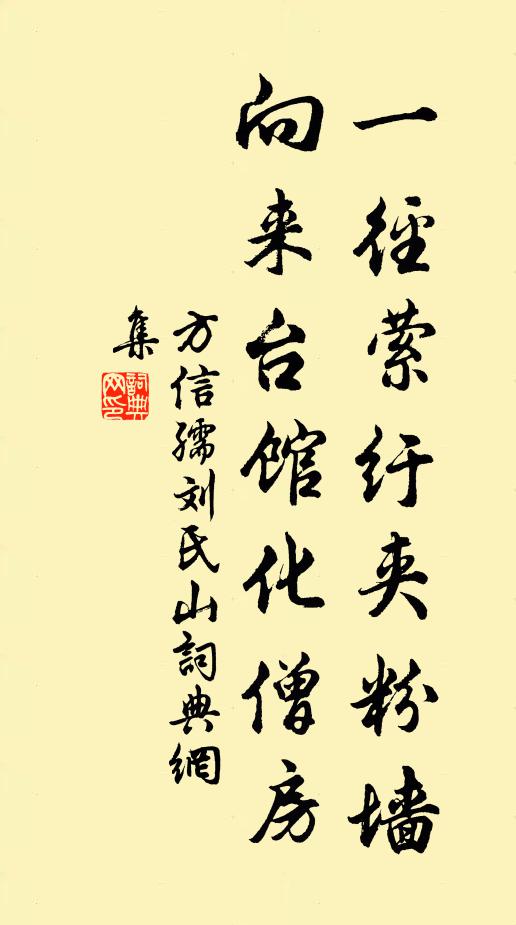 一径萦纡夹粉墙
向来台馆化僧房
方信孺刘氏山詞典網
集
詞典网印